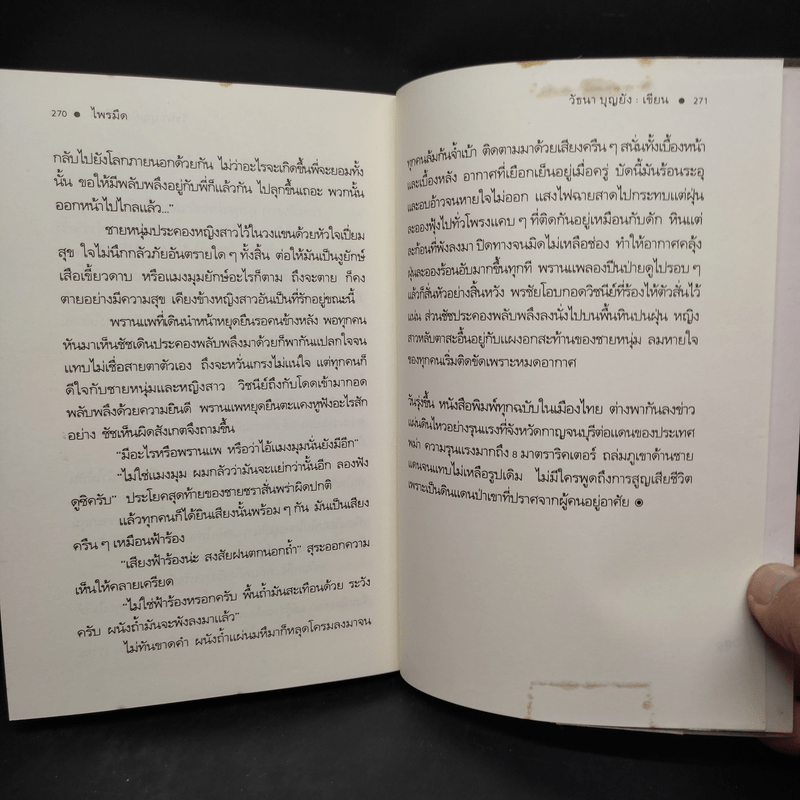 270 ● ไพรมืด
กลับไปยังโลกภายนอกด้วยกัน ไม่ว่าอะไรจะเกิดขึ้นพี่จะยอมทั้ง
นั้น ขอให้มีพลับพลึงอยู่กับพี่ก็แล้วกัน ไปลุกขึ้นเถอะ พวกนั้น
ออกหน้าไปไกลแล้ว..."
ชายหนุ่มประคองหญิงสาวไว้ในวงแขนด้วยหัวใจเปี่ยม
สุข ใจไม่นึกกลัวภัยอันตรายใดๆ ทั้งสิ้น ต่อให้มันเป็นงูยักษ์
เสือเขี้ยวดาบ หรือแมงมุมยักษ์อะไรก็ตาม ถึงจะตาย ก็คง
ตายอย่างมีความสุข เคียงข้างหญิงสาวอันเป็นที่รักอยู่ขณะนี้
พรานแพที่เดินนำหน้าหยุดยืนรอคนข้างหลัง พอทุกคน
หันมาเห็นชัชเดินประคองพลับพลึงมาด้วยก็พากันแปลกใจจน
แทบไม่เชื่อสายตาตัวเอง ถึงจะหวั่นเกรงไม่แน่ใจ แต่ทุกคนก็
ดีใจกับชายหนุ่มและหญิงสาว วิชนีย์ถึงกับโดดเข้ามากอด
พลับพลึงด้วยความยินดี พรานแพหยุดยืนตะแคงหูฟังอะไรสัก
อย่าง ชัชเห็นผิดสังเกตจึงถามขึ้น
"มีอะไรหรือพรานแพ หรือว่าไอ้แมงมุมนั่นยังมีอีก"
"ไม่ใช่แมงมุม ผมกลัวว่ามันจะแย่กว่านั้นอีก ลองฟัง
ดูซิครับ" ประโยคสุดท้ายของชายชราสั่นพร่าผิดปกติ
แล้วทุกคนก็ได้ยินเสียงนั้นพร้อมๆ กัน มันเป็นเสียง
ครืนๆ เหมือนฟ้าร้อง
"เสียงฟ้าร้องน่ะ สงสัยฝนตกนอกถ้ำ" สุระออกความ
เห็นให้คลายเครียด
"ไม่ใช่ฟ้าร้องหรอกครับ พื้นถ้ำมันสะเทือนด้วย ระวัง
ครับ ผนังถ้ำมันจะพังลงมาแล้ว"
ไม่ทันขาดคำ ผนังถ้ำแผ่นมหึมาก็หลุดโครมลงมาจน
วัธนา บุญยัง : เขียน ● 271
ทุกคนล้มก้นจ้ำเบ้า ติดตามมาด้วยเสียงครืนๆ สนั่นทั้งเบื้องหน้า
และเบื้องหลัง อากาศที่เยือกเย็นอยู่เมื่อครู่ บัดนี้มันร้อนระอุ
และอบอ้าวจนหายใจไม่ออก แสงไฟฉายสาดไปกระทบแต่ฝุ่น
ละอองฟุ้งไปทั่วโพรงแคบๆ ที่ติดกันอยู่เหมือนกับดัก หินแต่
ละก้อนที่พังลงมา ปิดทางจนมิดไม่เหลือช่อง ทำให้อากาศคลุ้ง
ฝุ่นละอองร้อนอับมากขึ้นทุกที พรานแพลองปีนป่ายดูไปรอบๆ
แล้วก็สั่นหัวอย่างสิ้นหวัง พรชัยโอบกอดวิชนีย์ที่ร้องไห้ตัวสั่นไว้
แน่น ส่วนชัชประคองพลับพลึงลงนั่งไปบนพื้นหินปนฝุ่น หญิง
สาวหลับตาสะอื้นอยู่กับแผงอกสะท้านของชายหนุ่ม ลมหายใจ
ของทุกคนเริ่มติดขัดเพราะหมดอากาศ
วันรุ่งขึ้น หนังสือพิมพ์ทุกฉบับในเมืองไทย ต่างพากันลงข่าว
แผ่นดินไหวอย่างรุนแรงที่จังหวัดกาญจนบุรีต่อแดนของประเทศ
พม่า ความรุนแรงมากถึง 8 มาตราริคเตอร์ ถล่มภูเขาด้านชาย
แดนจนแทบไม่เหลือรูปเดิม ไม่มีใครพูดถึงการสูญเสียชีวิต
เพราะเป็นดินแดนป่าเขาที่ปราศจากผู้คนอยู่อาศัย ◉